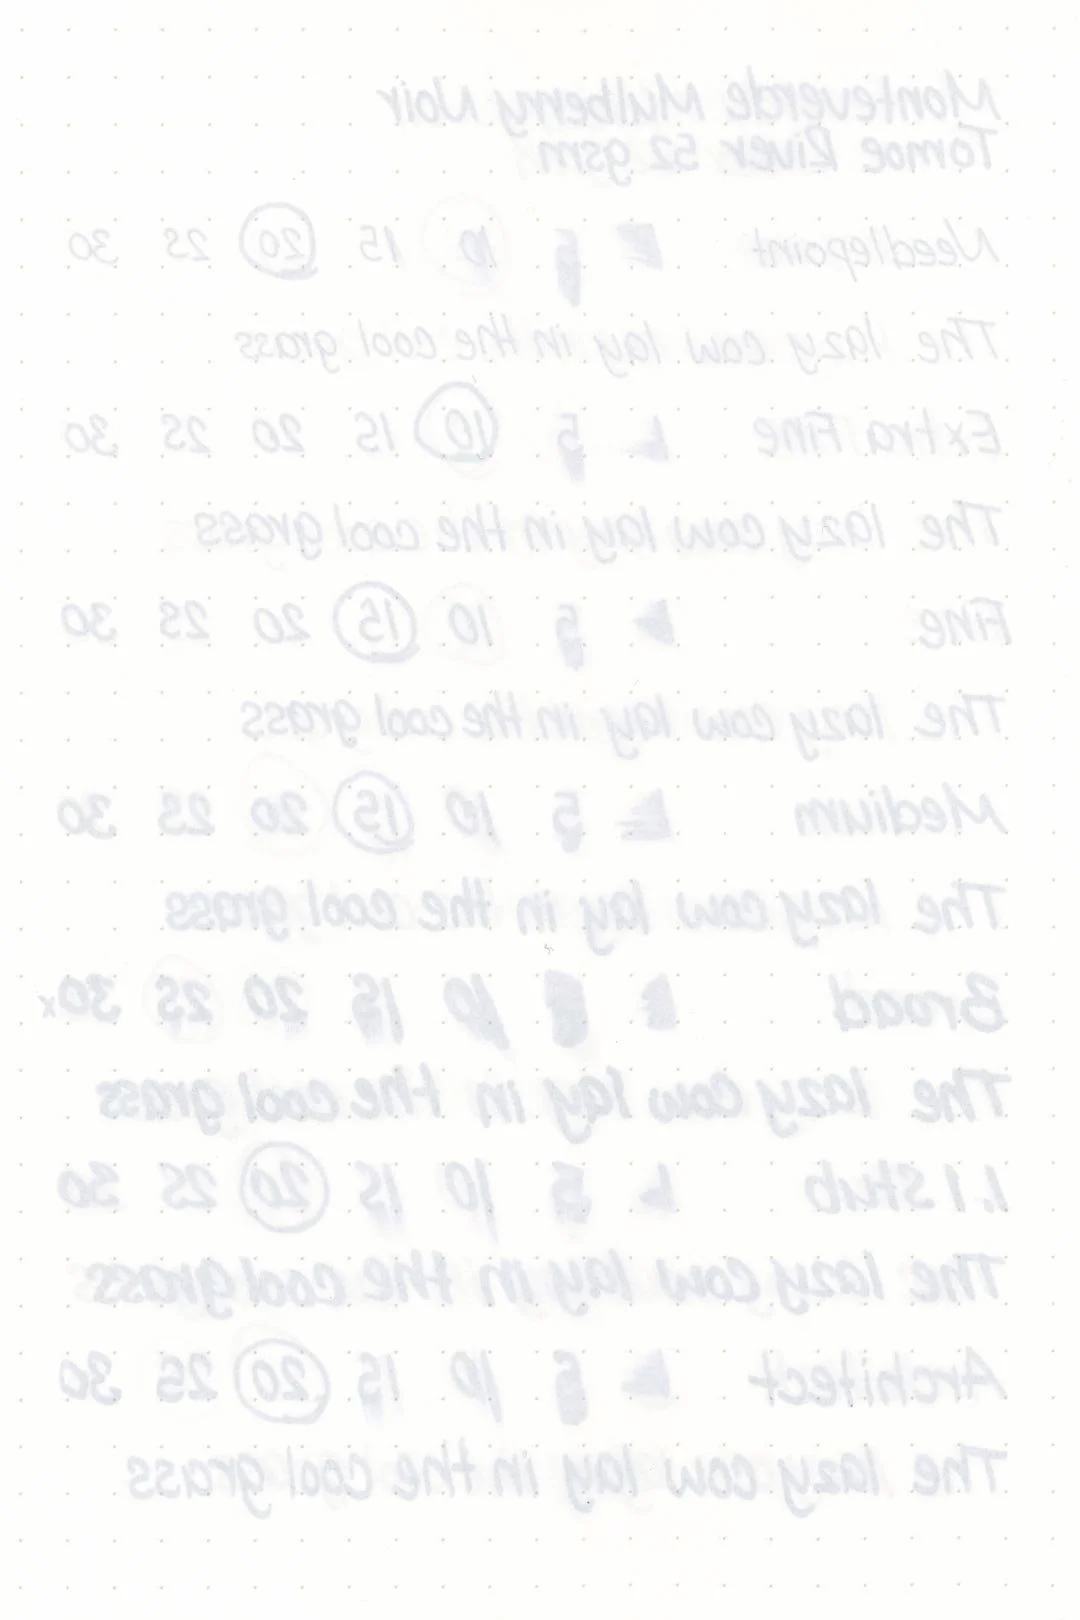 Monteverde Mulberry Noir
Tomoe River 52 gsm
Needlepoint 5 10 15 20 25 30
The lazy cow lay in the cool grass
Extra Fine 5 10 15 20 25 30
The lazy cow lay in the cool grass
Fine 5 10 15 20 25 30
The lazy cow lay in the cool grass
Medium 5 10 15 20 25 30
The lazy cow lay in the cool grass
Broad 5 10 15 20 25 30x
The lazy cow lay in the cool grass
1.1 Stub 5 10 15 20 25 30
The lazy cow lay in the cool grass
Architect 5 10 15 20 25 30
The lazy cow lay in the cool grass